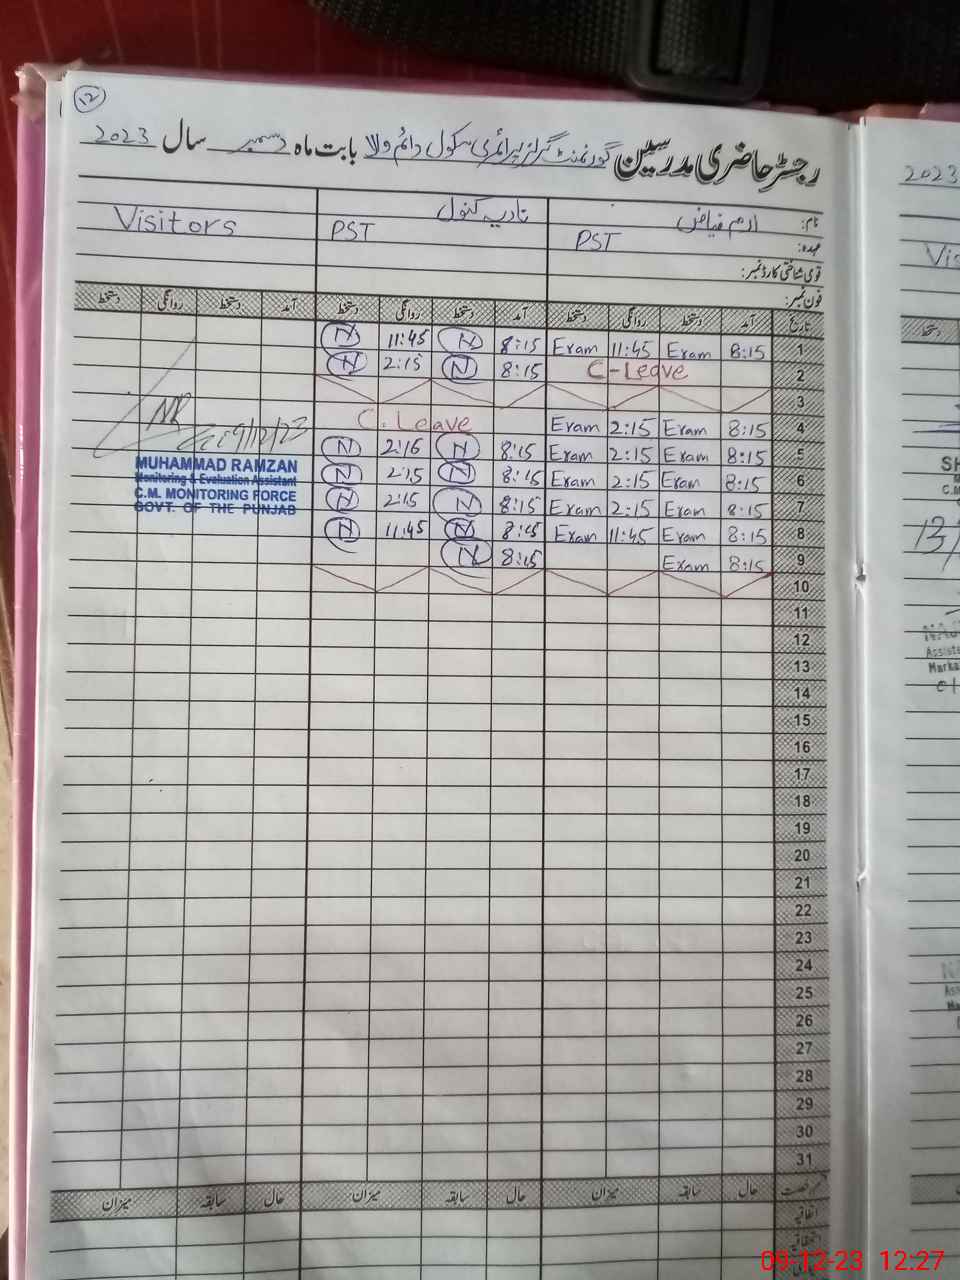 ۱۲
رجسٹر حاضری مدرسین گورنمنٹ گرلز پرائمری سکول دائم والا بابت ماہ دسمبر سال 2023
نام: ارم فیاض نادیہ کنول Visitors
عہدہ: PST PST
قومی شناختی کارڈ نمبر:
فون نمبر:
تاریخ آمد دستخط روانگی دستخط آمد دستخط روانگی دستخط آمد دستخط روانگی دستخط
1 8:15 Exam 11:45 Exam 8:15 N 11:45 N
2 C-Leave 8:15 N 2:15 N
3
4 8:15 Exam 2:15 Exam C.Leave
5 8:15 Exam 2:15 Exam 8:15 N 2:16 N
6 8:15 Exam 2:15 Exam 8:15 N 2:15 N
7 8:15 Exam 2:15 Exam 8:15 N 2:15 N
8 8:15 Exam 11:45 Exam 8:15 N 11:45 N
9 8:15 Exam 8:15 N
10
11
12
13
14
15
16
17
18
19
20
21
22
23
24
25
26
27
28
29
30
31
حال سابقہ میزان حال سابقہ میزان حال سابقہ میزان
اتفاقیہ
9/12/23
MUHAMMAD RAMZAN
Monitoring & Evaluation Assistant
C.M. MONITORING FORCE
GOVT. OF THE PUNJAB
2023
دستخط
SH
C.M
13/
Assista
Marka
09-12-23 12:27